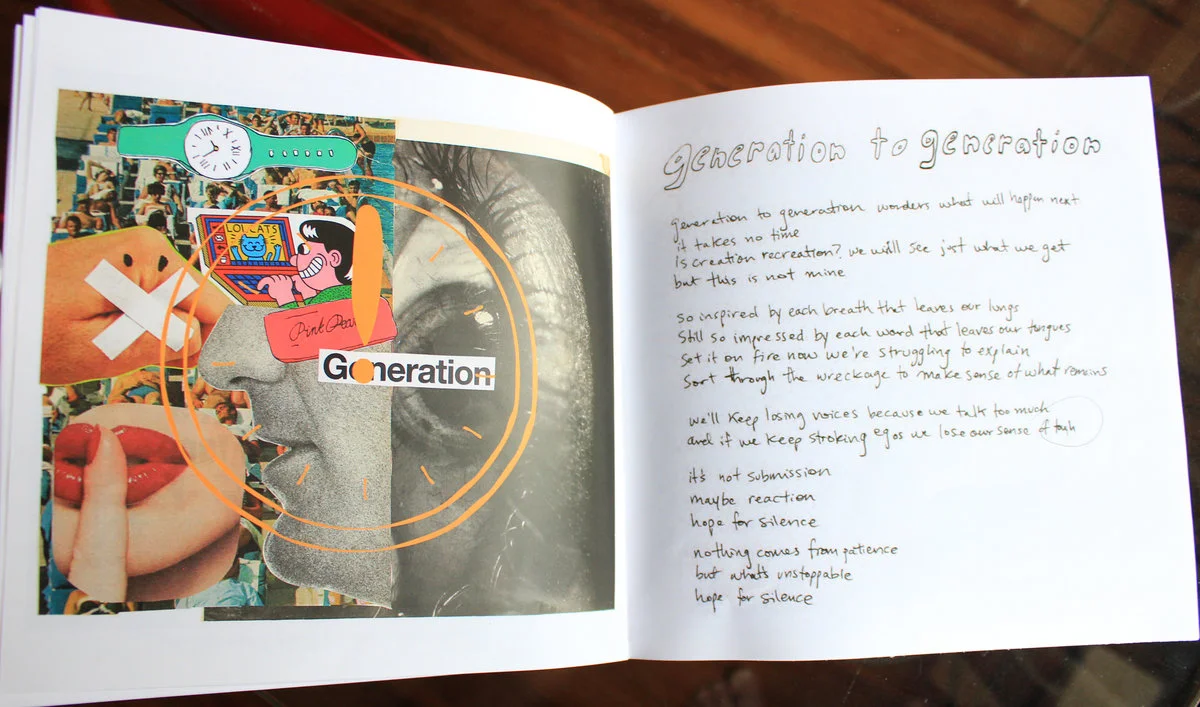 LOL CATS
Pink Pearl
Generation
generation to generation
generation to generation wonders what will happen next
it takes no time
is creation recreation? we will see just what we get
but this is not mine
so inspired by each breath that leaves our lungs
still so impressed by each word that leaves our tongues
set it on fire now we're struggling to explain
sort through the wreckage to make sense of what remains
we'll keep losing voices because we talk too much
and if we keep stroking egos we lose our sense of
it's not submission
maybe reaction
hope for silence
nothing comes from patience
but what's unstoppable
hope for silence